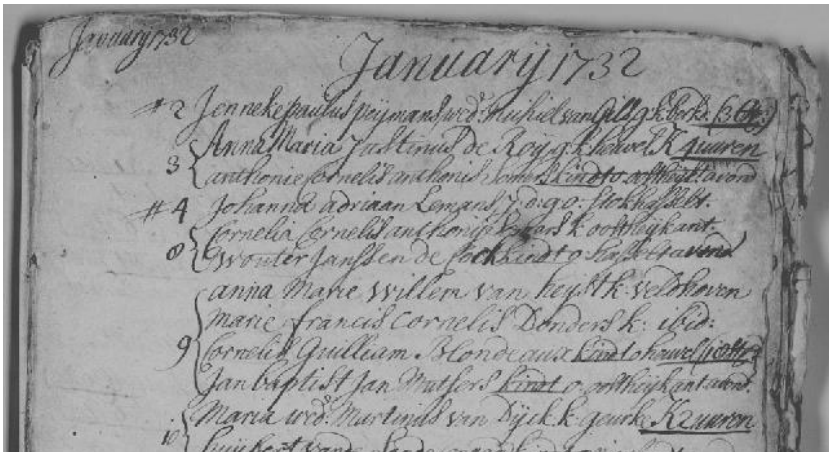 January 1732
Januarij 1732
#2 Jenneke paulus peijmans wed: Michiel van Gils g: k: kerks. (3 kk:)
Anna Maria Jastinus de Roij g: k houvel K 4 uuren
3 anthonie Cornelis anthonis Somers kindt o oostheijkt avond
#4 Johanna adriaan Lemans J: d: g o: Stokhasselt.
Cornelia Cornelis anthonis k oostheijkant.
8 Wouter Janssen de kindt o: hasselt avond
anna Marie Willem van heijst k: veldhoven
Marie francis Cornelis Donders k: ibid:
9 Cornelis Guilliam Blondeaux kindt o houvel
Jan baptist Jan Mutsers kindt o oostheijkant avond.
Maria wed: Martinus van Dijck k: geurke K 2 uuren
10 huijbert vande